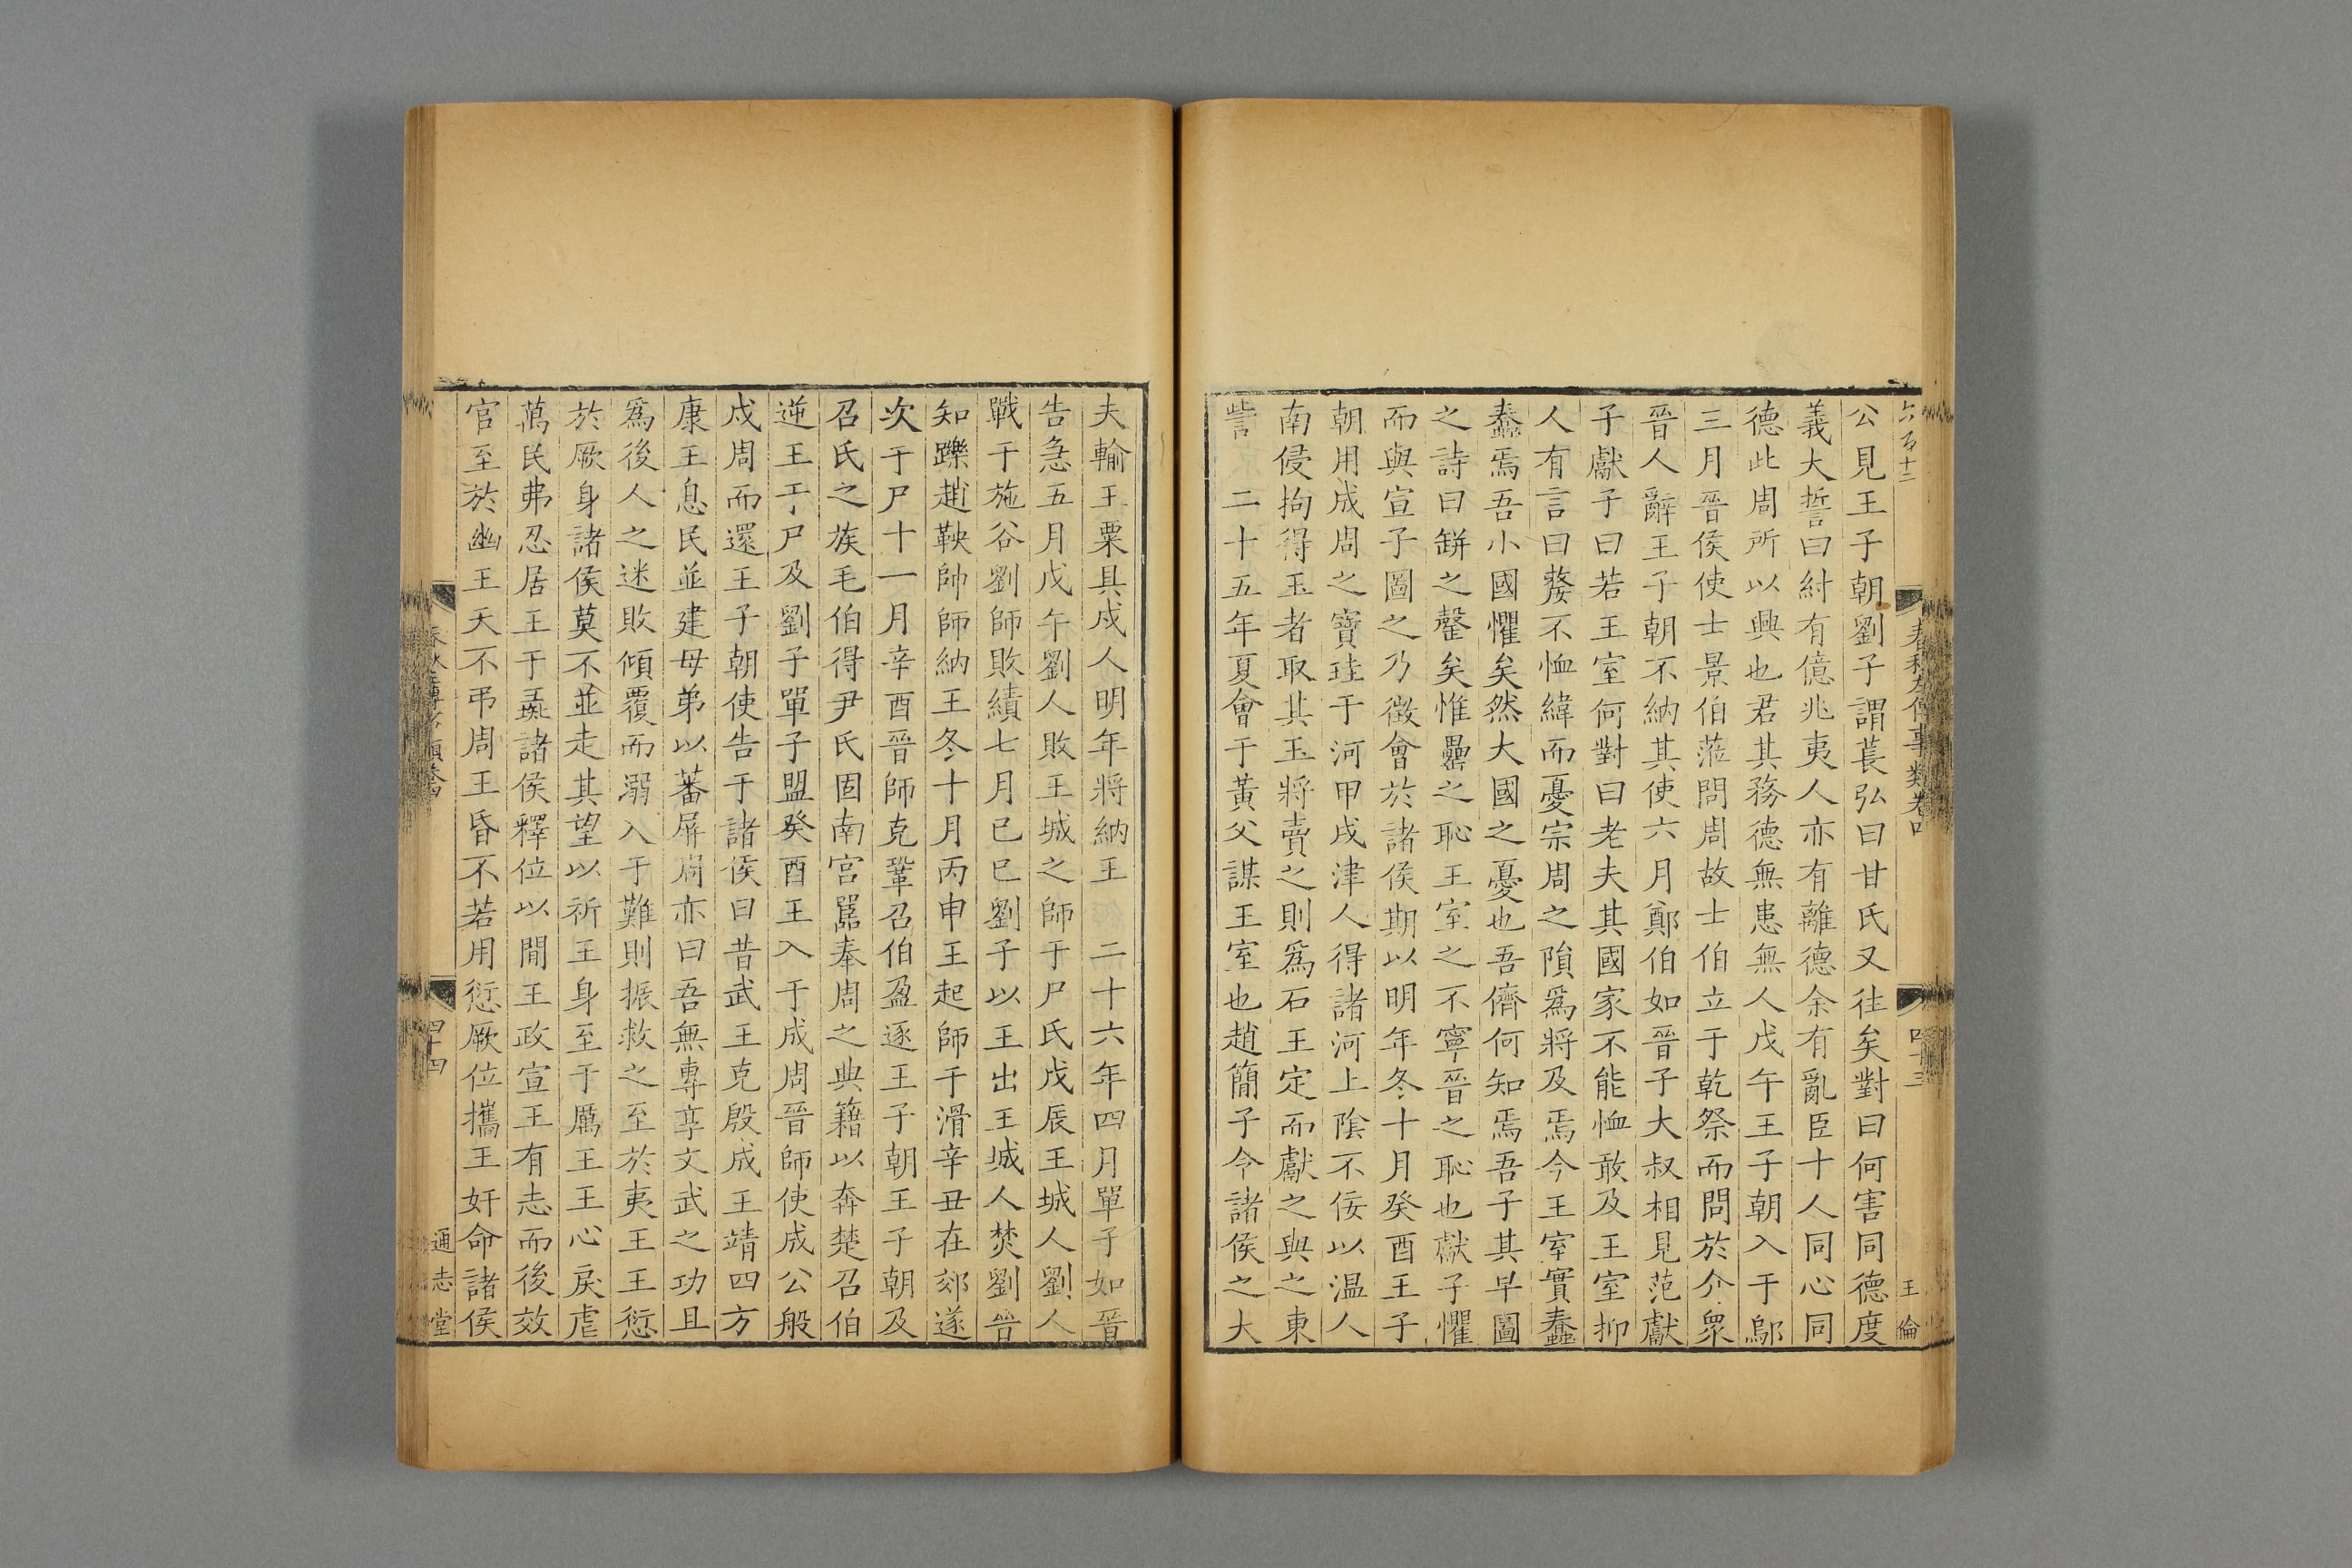 六百十二
春秋左傳事類卷四
四十三
王倫
公見王子朝劉子謂萇弘曰甘氏又往矣對曰何害同德度
義大誓曰紂有億兆夷人亦有離德余有亂臣十人同心同
德此周所以興也君其務德無患無人戊午王子朝入于鄔
三月晉侯使士景伯蒞問周故士伯立于乾祭而問於介衆
晉人辭王子朝不納其使六月鄭伯如晉子大叔相見范獻
子獻子曰若王室何對曰老夫其國家不能恤敢及王室抑
人有言曰嫠不恤緯而憂宗周之隕爲將及焉今王室實蠢
蠢焉吾小國懼矣然大國之憂也吾儕何知焉吾子其早圖
之詩曰缾之罄矣惟罍之恥王室之不寧晉之恥也獻子懼
而與宣子圖之乃徵會於諸侯期以明年冬十月癸酉王子
朝用成周之寶珪于河甲戌津人得諸河上陰不佞以温人
南侵拘得玉者取其玉將賣之則爲石王定而獻之與之東
訾　二十五年夏會于黃父謀王室也趙簡子令諸侯之大
夫輸王粟具戍人明年將納王　二十六年四月單子如晉
告急五月戊午劉人敗王城之師于尸氏戊辰王城人劉人
戰于施谷劉師敗績七月已巳劉子以王出王城人焚劉晉
知躒趙鞅帥師納王冬十月丙申王起師于滑辛丑在郊遂
次于尸十一月辛酉晉師克鞏召伯盈逐王子朝王子朝及
召氏之族毛伯得尹氏固南宮嚚奉周之典籍以奔楚召伯
逆王于尸及劉子單子盟癸酉王入于成周晉師使成公般
戍周而還王子朝使告于諸侯曰昔武王克殷成王靖四方
康王息民並建母弟以蕃屏周亦曰吾無專享文武之功且
爲後人之迷敗傾覆而溺入于難則振救之至於夷王王愆
於厥身諸侯莫不並走其望以祈王身至于厲王王心戾虐
萬民弗忍居王于彘諸侯釋位以間王政宣王有志而後效
官至於幽王天不弔周王昏不若用愆厥位攜王奸命諸侯
四十四
通志堂